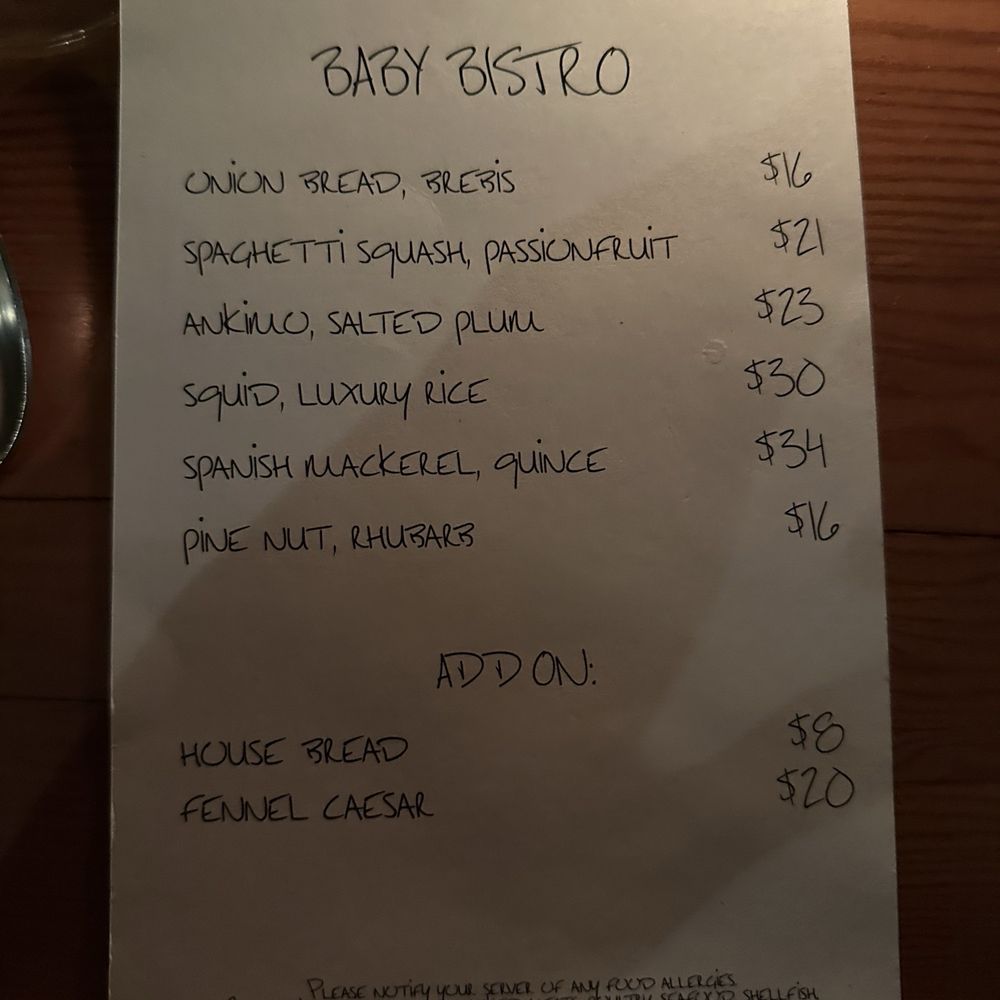 BABY BISTRO
ONION BREAD, BREBIS $16
SPAGHETTI SQUASH, PASSIONFRUIT $21
ANKIMO, SALTED PLUM $23
SQUID, LUXURY RICE $30
SPANISH MACKEREL, QUINCE $34
PINE NUT, RHUBARB $16
ADD ON:
HOUSE BREAD $8
FENNEL CAESAR $20
PLEASE NOTIFY YOUR SERVER OF ANY FOOD ALLERGIES.
POULTRY, SEAFOOD, SHELLFISH,